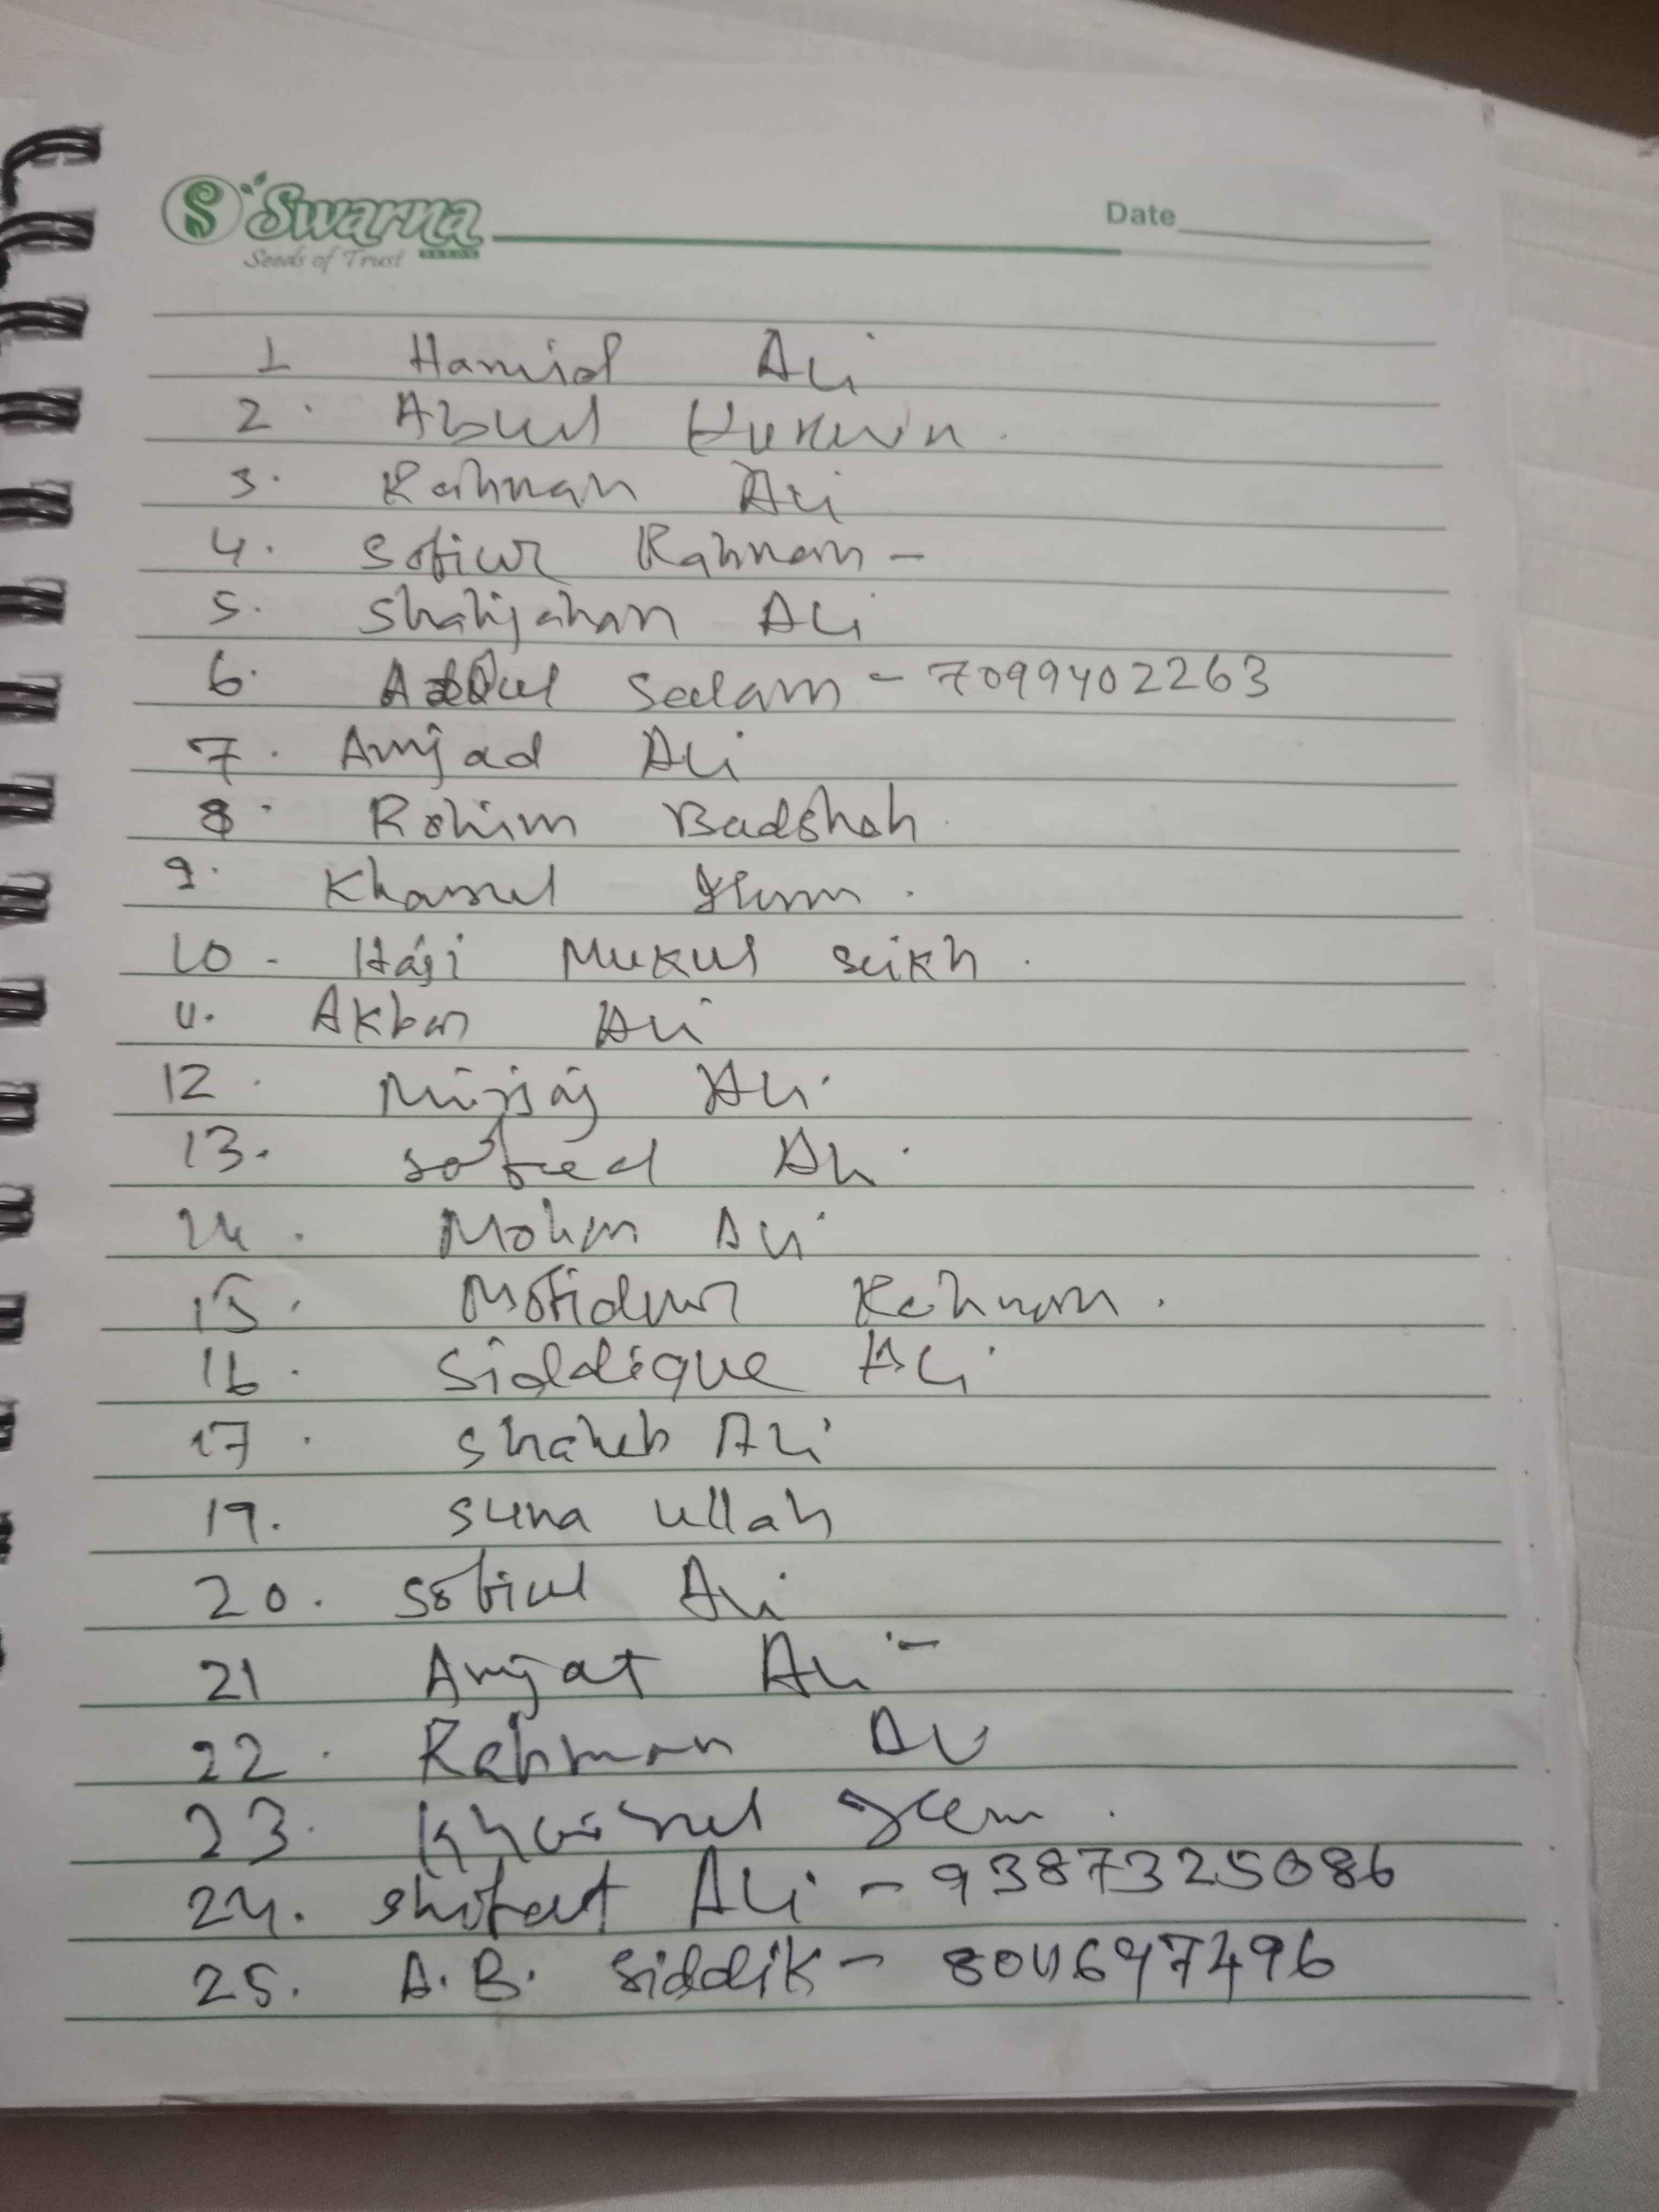 S Swarna
Seeds of Trust SEEDS
Date
1 Hamid Ali
2. Abul Hukein.
3. Rahman Ali
4. Sofiur Rahman -
5. Shahjahan Ali
6. Abdul Salam - 7099402263
7. Amjad Ali
8. Rohim Badshah.
9. Khairul Islam.
10 - Haji Mukul Seikh.
11. Akbar Ali
12. Mirjaj Ali
13. Ali
14. Ali
15. Mofidur Rahman.
16. Siddique Ali
17. Shaheb Ali
19. Suna ullah
20. Sofiul Ali
21 Amjat Ali -
22. Rahman Ali
23. Khairul Islam.
24. Ali - 9387325086
25. A. B. Siddik -